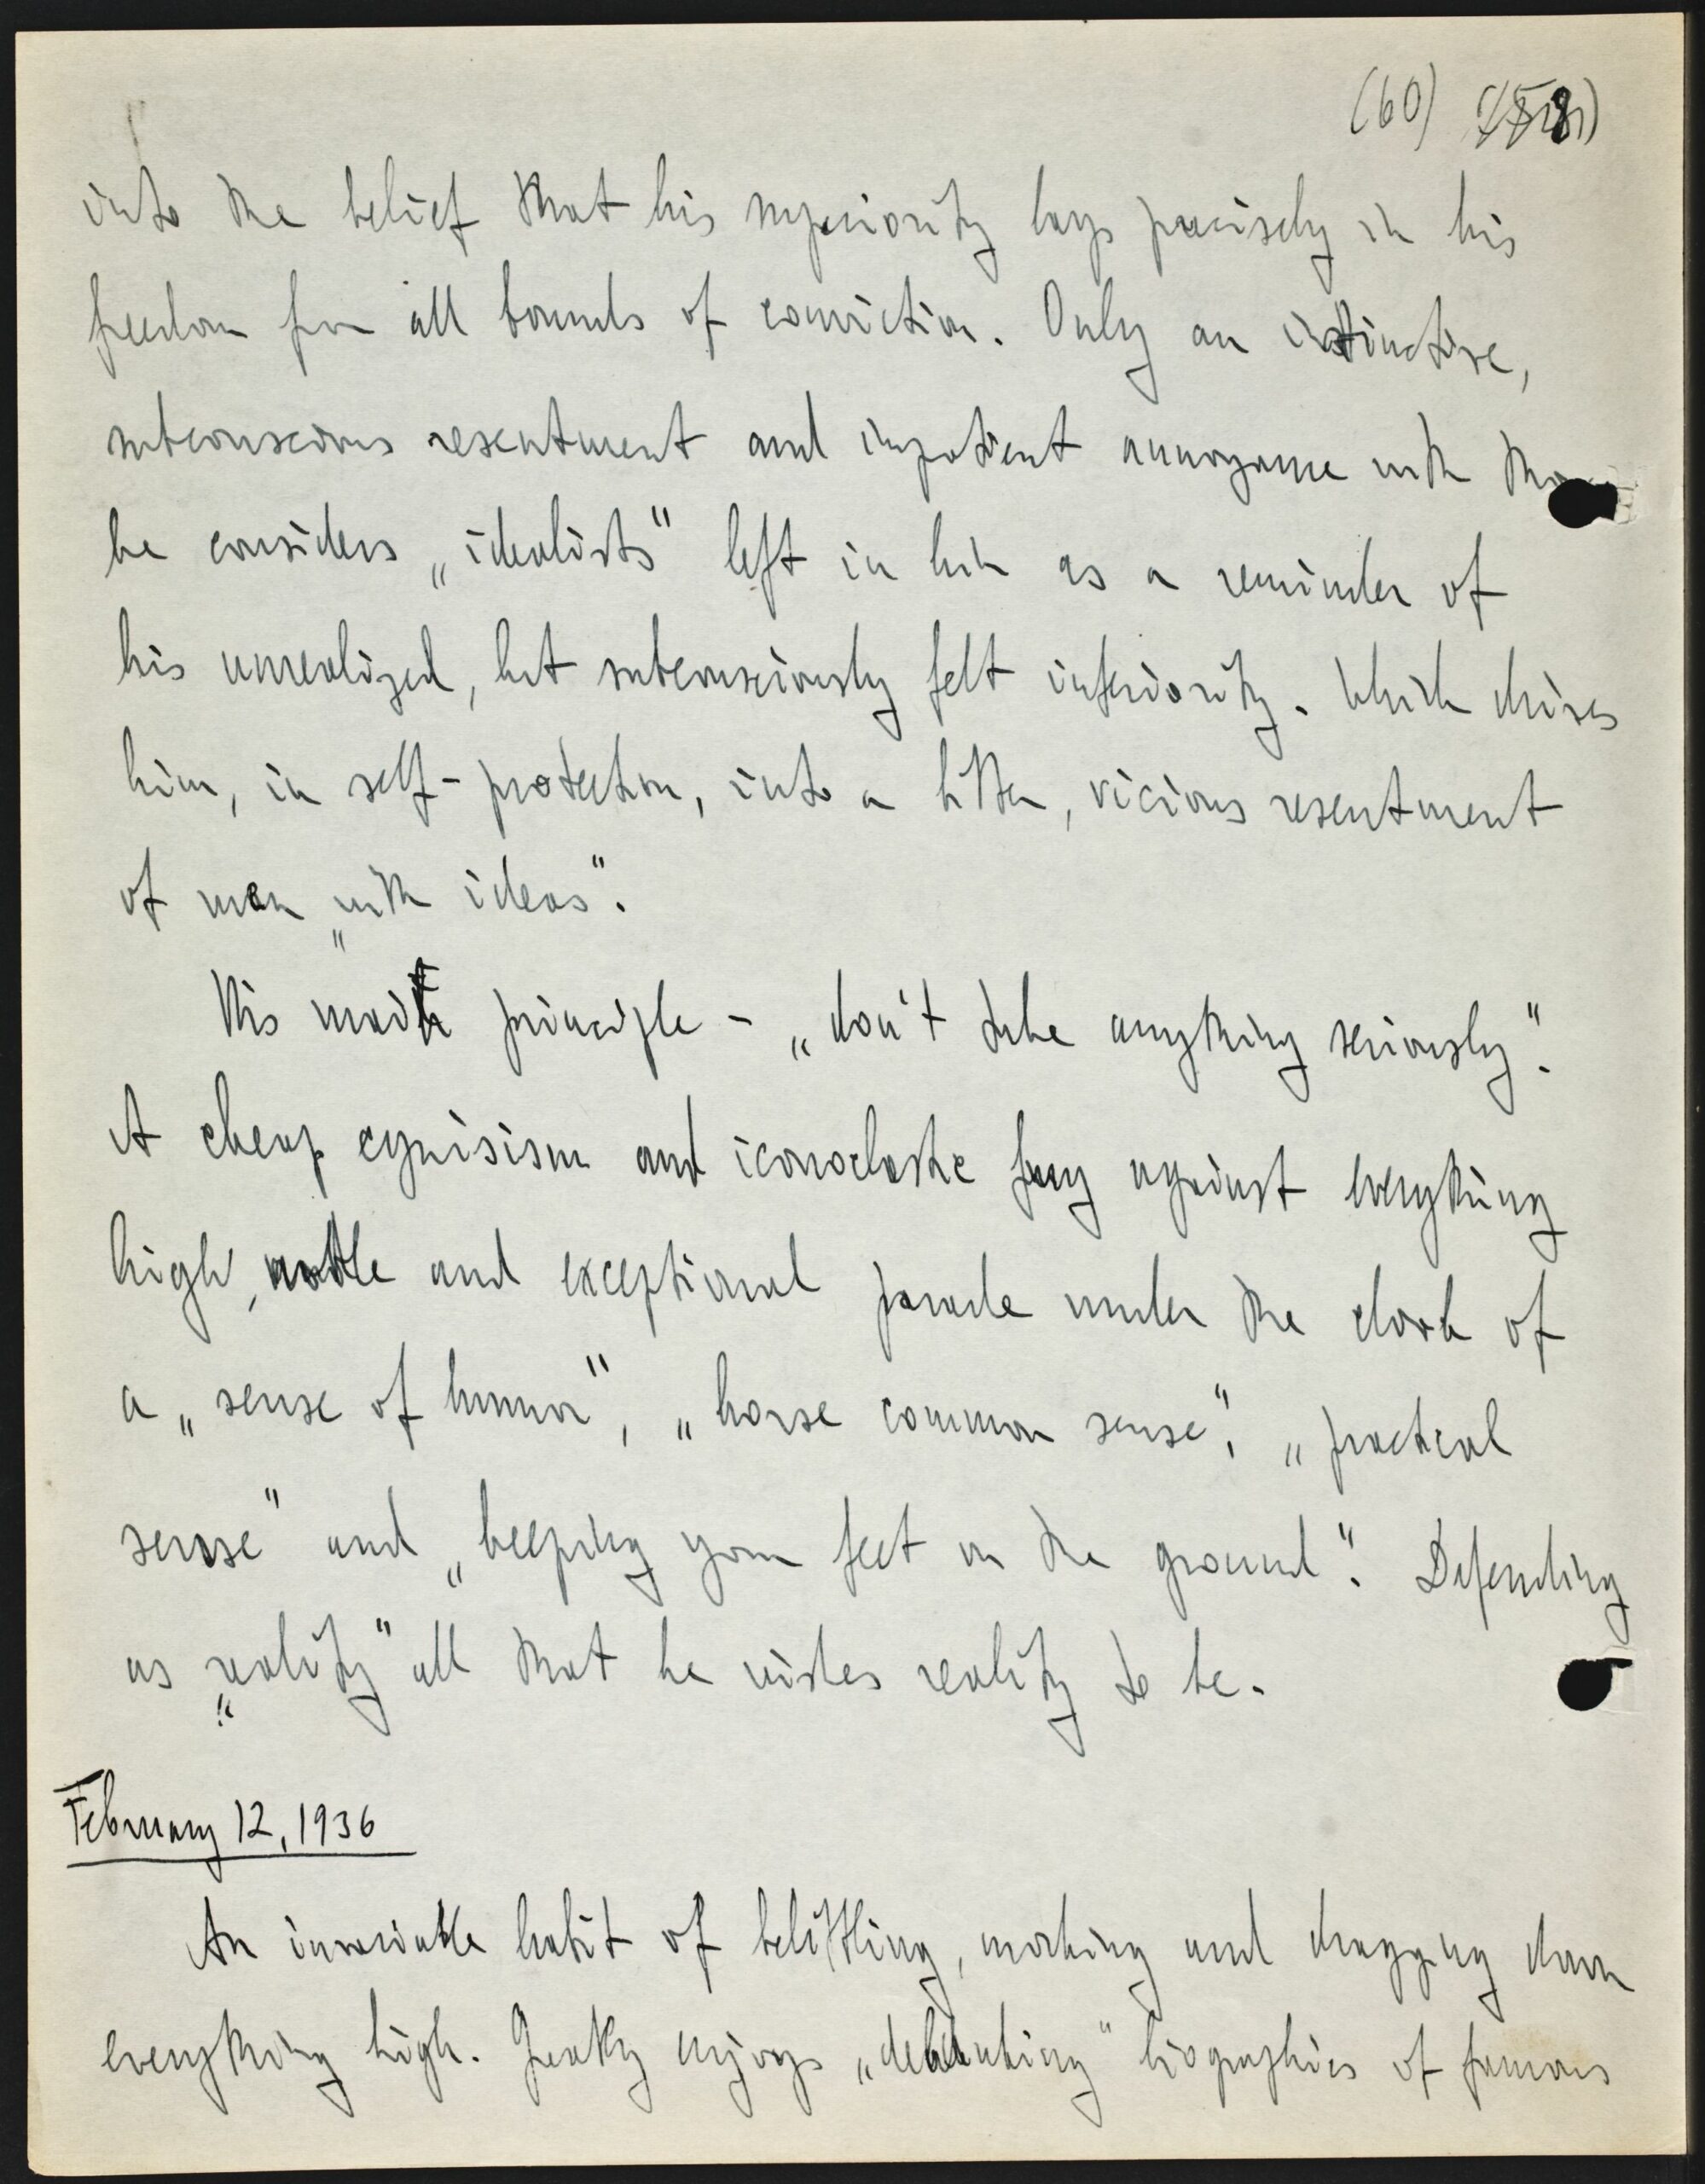 (60)
into the belief that his superiority lays precisely in his
freedom from all bounds of conviction. Only an instinctive,
subconscious resentment and impotient annoyance with
he considers „idealists" left in him as a reminder of
his unrealized, but subconsciously felt inferiority. Which drives
him, in self-protection, into a bitter, vicious resentment
of men „with ideas".
His main principle – „don't take anything seriously".
A cheap cynisism and iconoclastic fury against everything
high, noble and exceptional parade under the cloak of
a „sense of humor", „horse common sense", „practical
sense" and „keeping your feet on the ground". Defending
as „reality" all that he wishes reality to be.
February 12, 1936
An invariable habit of belittling, mocking and dragging down
everything high. Greatly enjoys „debunking" biographies of famous